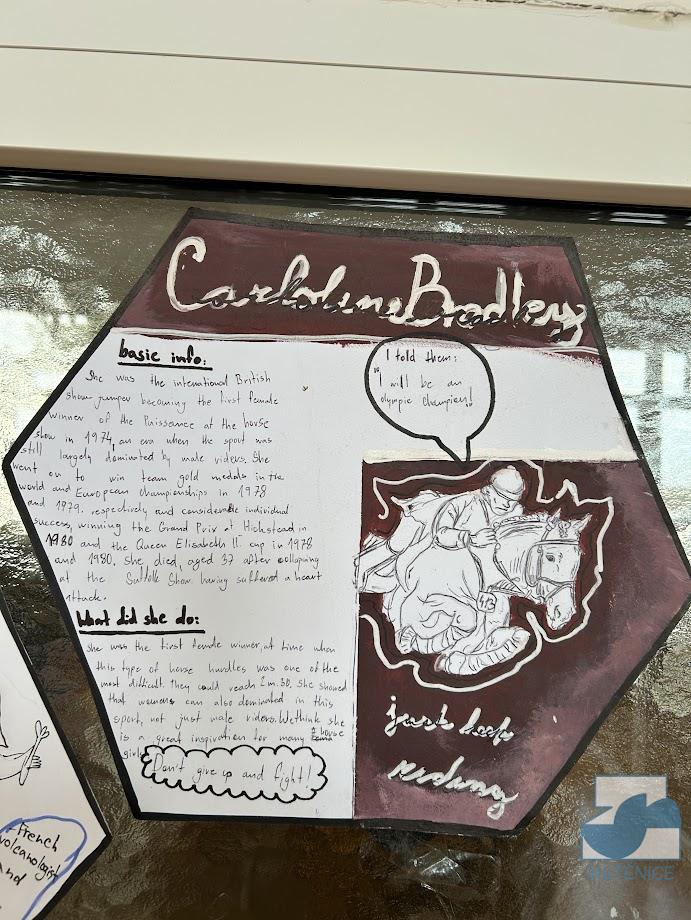 Caroline Bradley
basic info:
She was the international British
show jumper becoming the first female
winner of the Puissance at the horse
show in 1974, an era when the sport was
still largely dominated by male riders. She
went on to win team gold medals in the
world and European championships in 1978
and 1979, respectively and considerable individual
success, winning the Grand Prix at Hickstead in
1980 and the Queen Elisabeth II. cup in 1978
and 1980. She died, aged 37 after collapsing
at the Suffolk Show having suffered a heart
attack.
What did she do:
She was the first female winner, at time when
this type of horse hurdles was one of the
most difficult. They could reach 2m.30. She showed
that womens can also dominated in this
sport, not just male riders. We think she
is a great inspiration for many horse
girls
Don't give up and fight!
I told them:
"I will be an
olympic champion!"
just keep
French
volcanologist
and